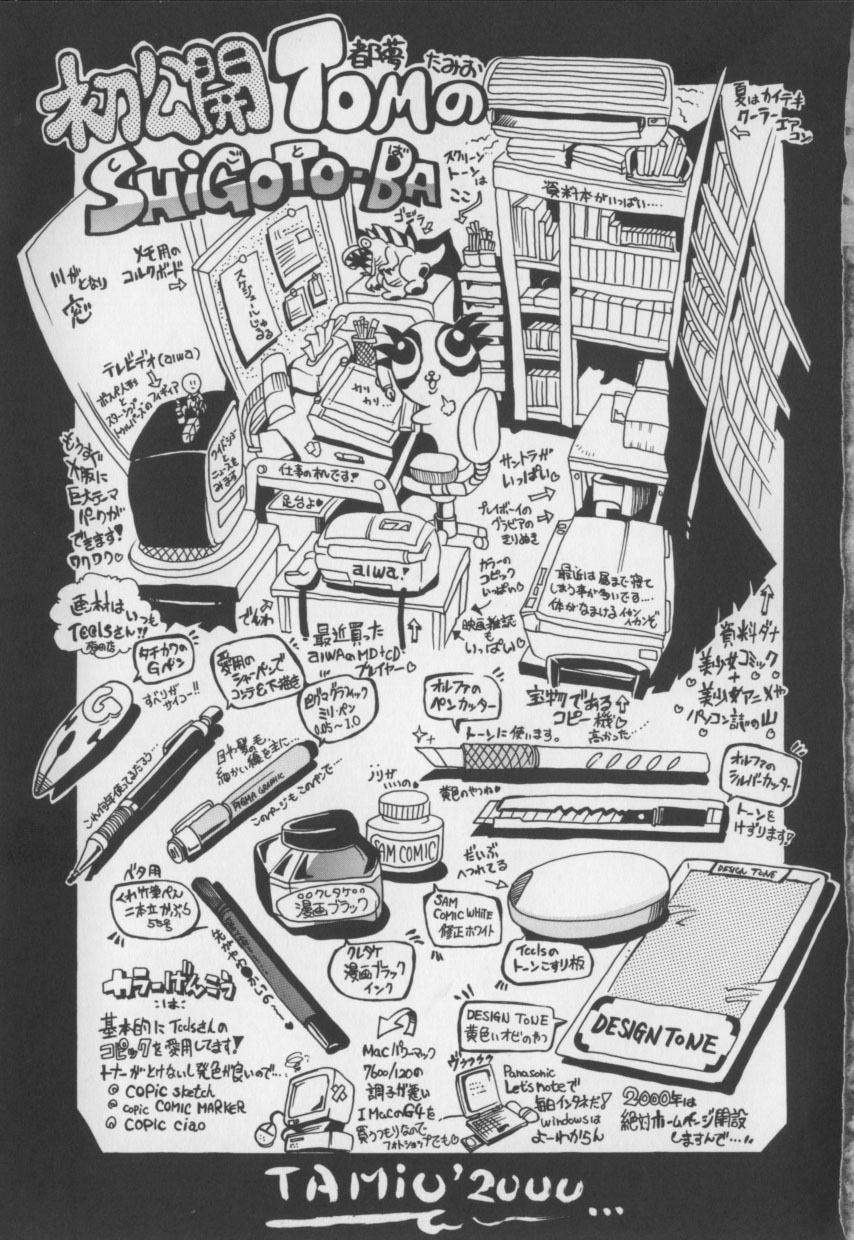 初公開 TOMの
都夢 たみお
SHiGOTO-BA
しごとば
夏はカイテキ
クーラーエアコン
スクリーン
トーンは
ココ
ゴジラ
資料本がいっぱい‥‥
メモ用の
コルクボード
川がとなり
窓
スケジュールじゅるる
テレビデオ(aiwa)
カリ
カリ‥
ワイドショー
と
ニュースを
みます
もうすぐ
大阪に
巨大テーマ
パークが
できます!
ワクワク♡
仕事の机です!
足台よ♡
サントラが
いっぱい♡
プレイボーイの
グラビアの
きりぬき
カラーの
コピック
いっぱい♡
映画雑誌
も
いっぱい♡
aiwa!
最近買った
aiwaのMD+CD
プレイヤー♡
でんわ
最近は昼まで寝て
しまう事が多いです‥‥
体がなまける イカン
イカンぞ
宝物である
コピー機♡
高かった‥‥
資料ダナ
美少女コミック
+
美少女アニメや
パソコン誌の山
画材はいつも
Toolsさん!!
タチカワの
Gペン
すべりが
サイコー!!
愛用の
シャーペンで
コンテ&下描き
ピグマグラフィック
ミリ・ペン
0.05〜1.0
目や髪の毛
細かい線を主に‥‥
このページもこのペンで‥‥
PIGMA GRAPHIC
オルファの
ペンカッター
トーンに使います。
黄色のやつね♡
オルファの
シルバーカッター
トーンを
けずります!
ノリがいいの♡
SAM COMIC
SAM
COMIC WHITE
修正ホワイト
だいぶ
へっれてる
Toolsの
トーンこすり板
DESIGN TONE
DESIGN TONE
DESIGN TONE
黄色いオビのやつ
ベタ用
くれ竹筆ぺん
二本立かぶら
55号
クレタケ
漫画ブラック
クレタケ
漫画ブラック
インク
カラーげんこう
は
基本的にToolsさんの
コピックを愛用してます!
トナーがとけないし発色が良いので‥‥
@ COPiC sketch
@ COPiC COMIC MARKER
@ COPiC ciao
Macパワーマック
7600/120の
調子が悪い
IMacかG4を
買うつもりなので
フォトショップでも♡
Panasonic
Let's noteで
毎日インタネだ!
windowsは
よーわからん
2000年は
絶対ホームページ開設
しますんで‥‥
TAMiO'2000...